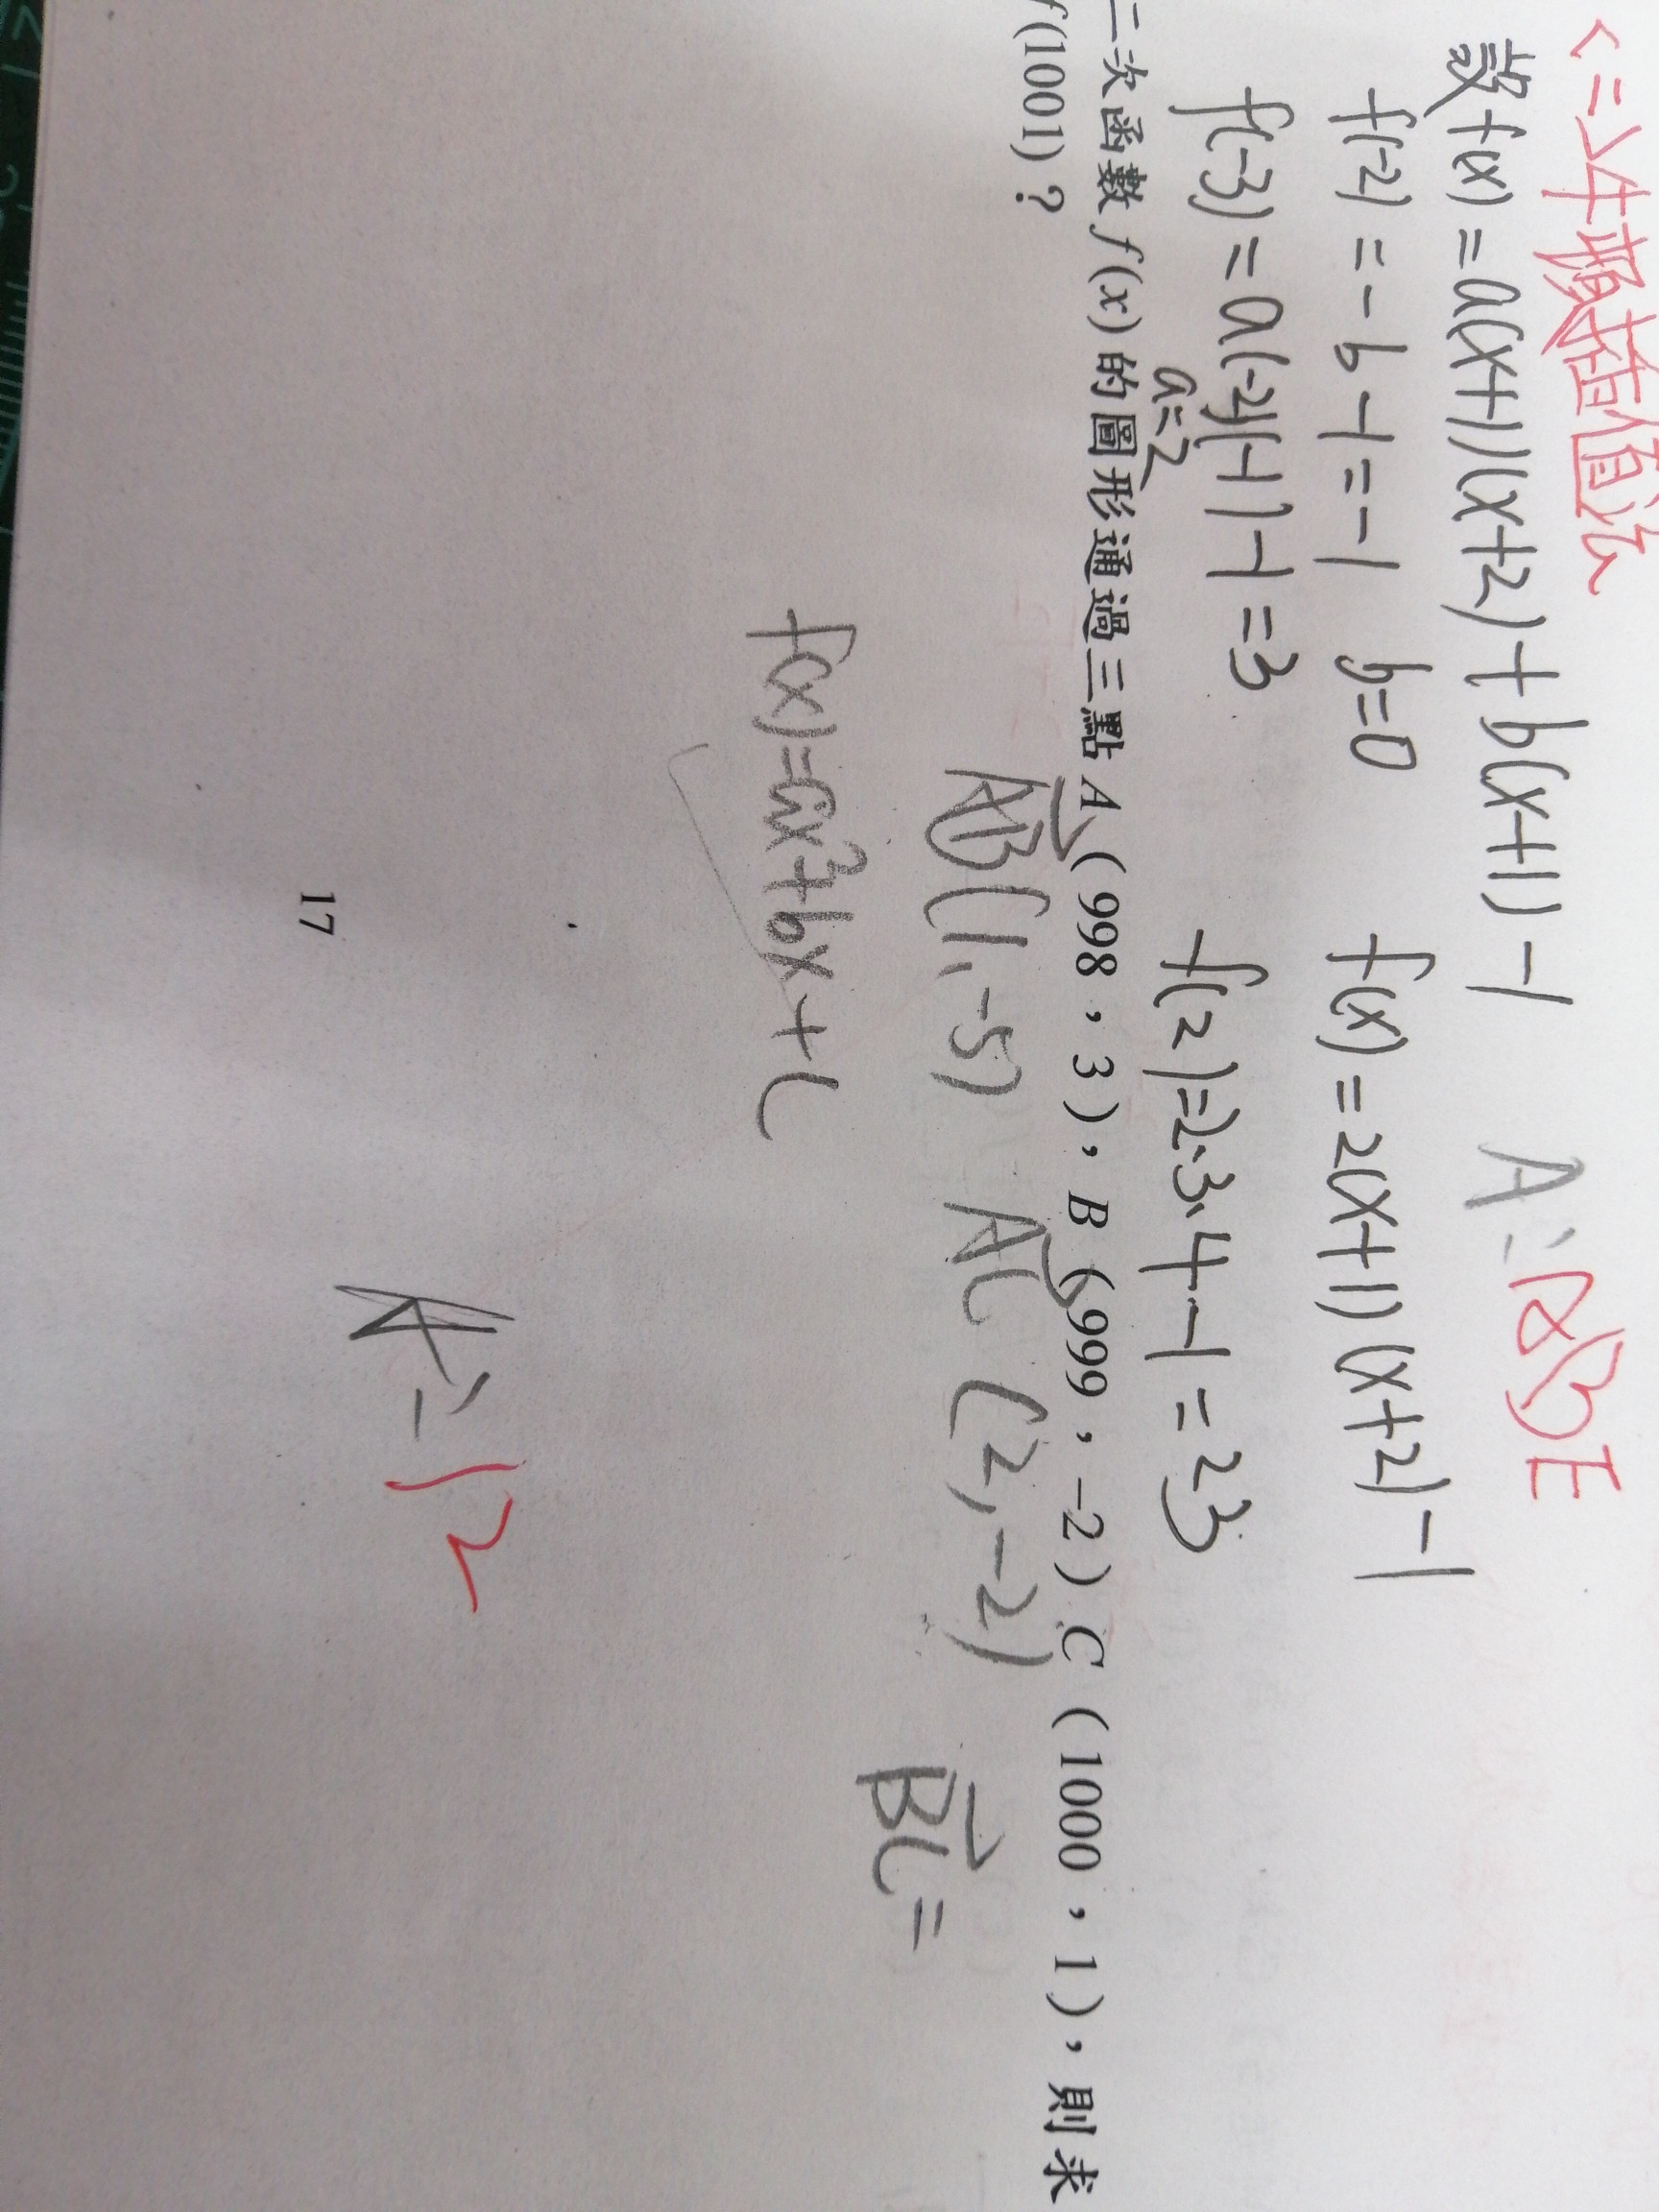 <二>牛頓插值法
設f(x)=a(x+1)(x+2)+b(x+1)-1
f(-2)=-b-1=-1 b=0
f(x)=2(x+1)(x+2)-1
f(-3)=a(-2)(-1)-1=3
a=2
f(2)=2·3·4-1=23
二次函數 f(x) 的圖形通過三點 A (998,3), B (999,-2) C (1000,1),則求
f(1001)?
AB(1,-5) AC(2,-2)
BC=
f(x)=ax²+bx+c
A:12
17